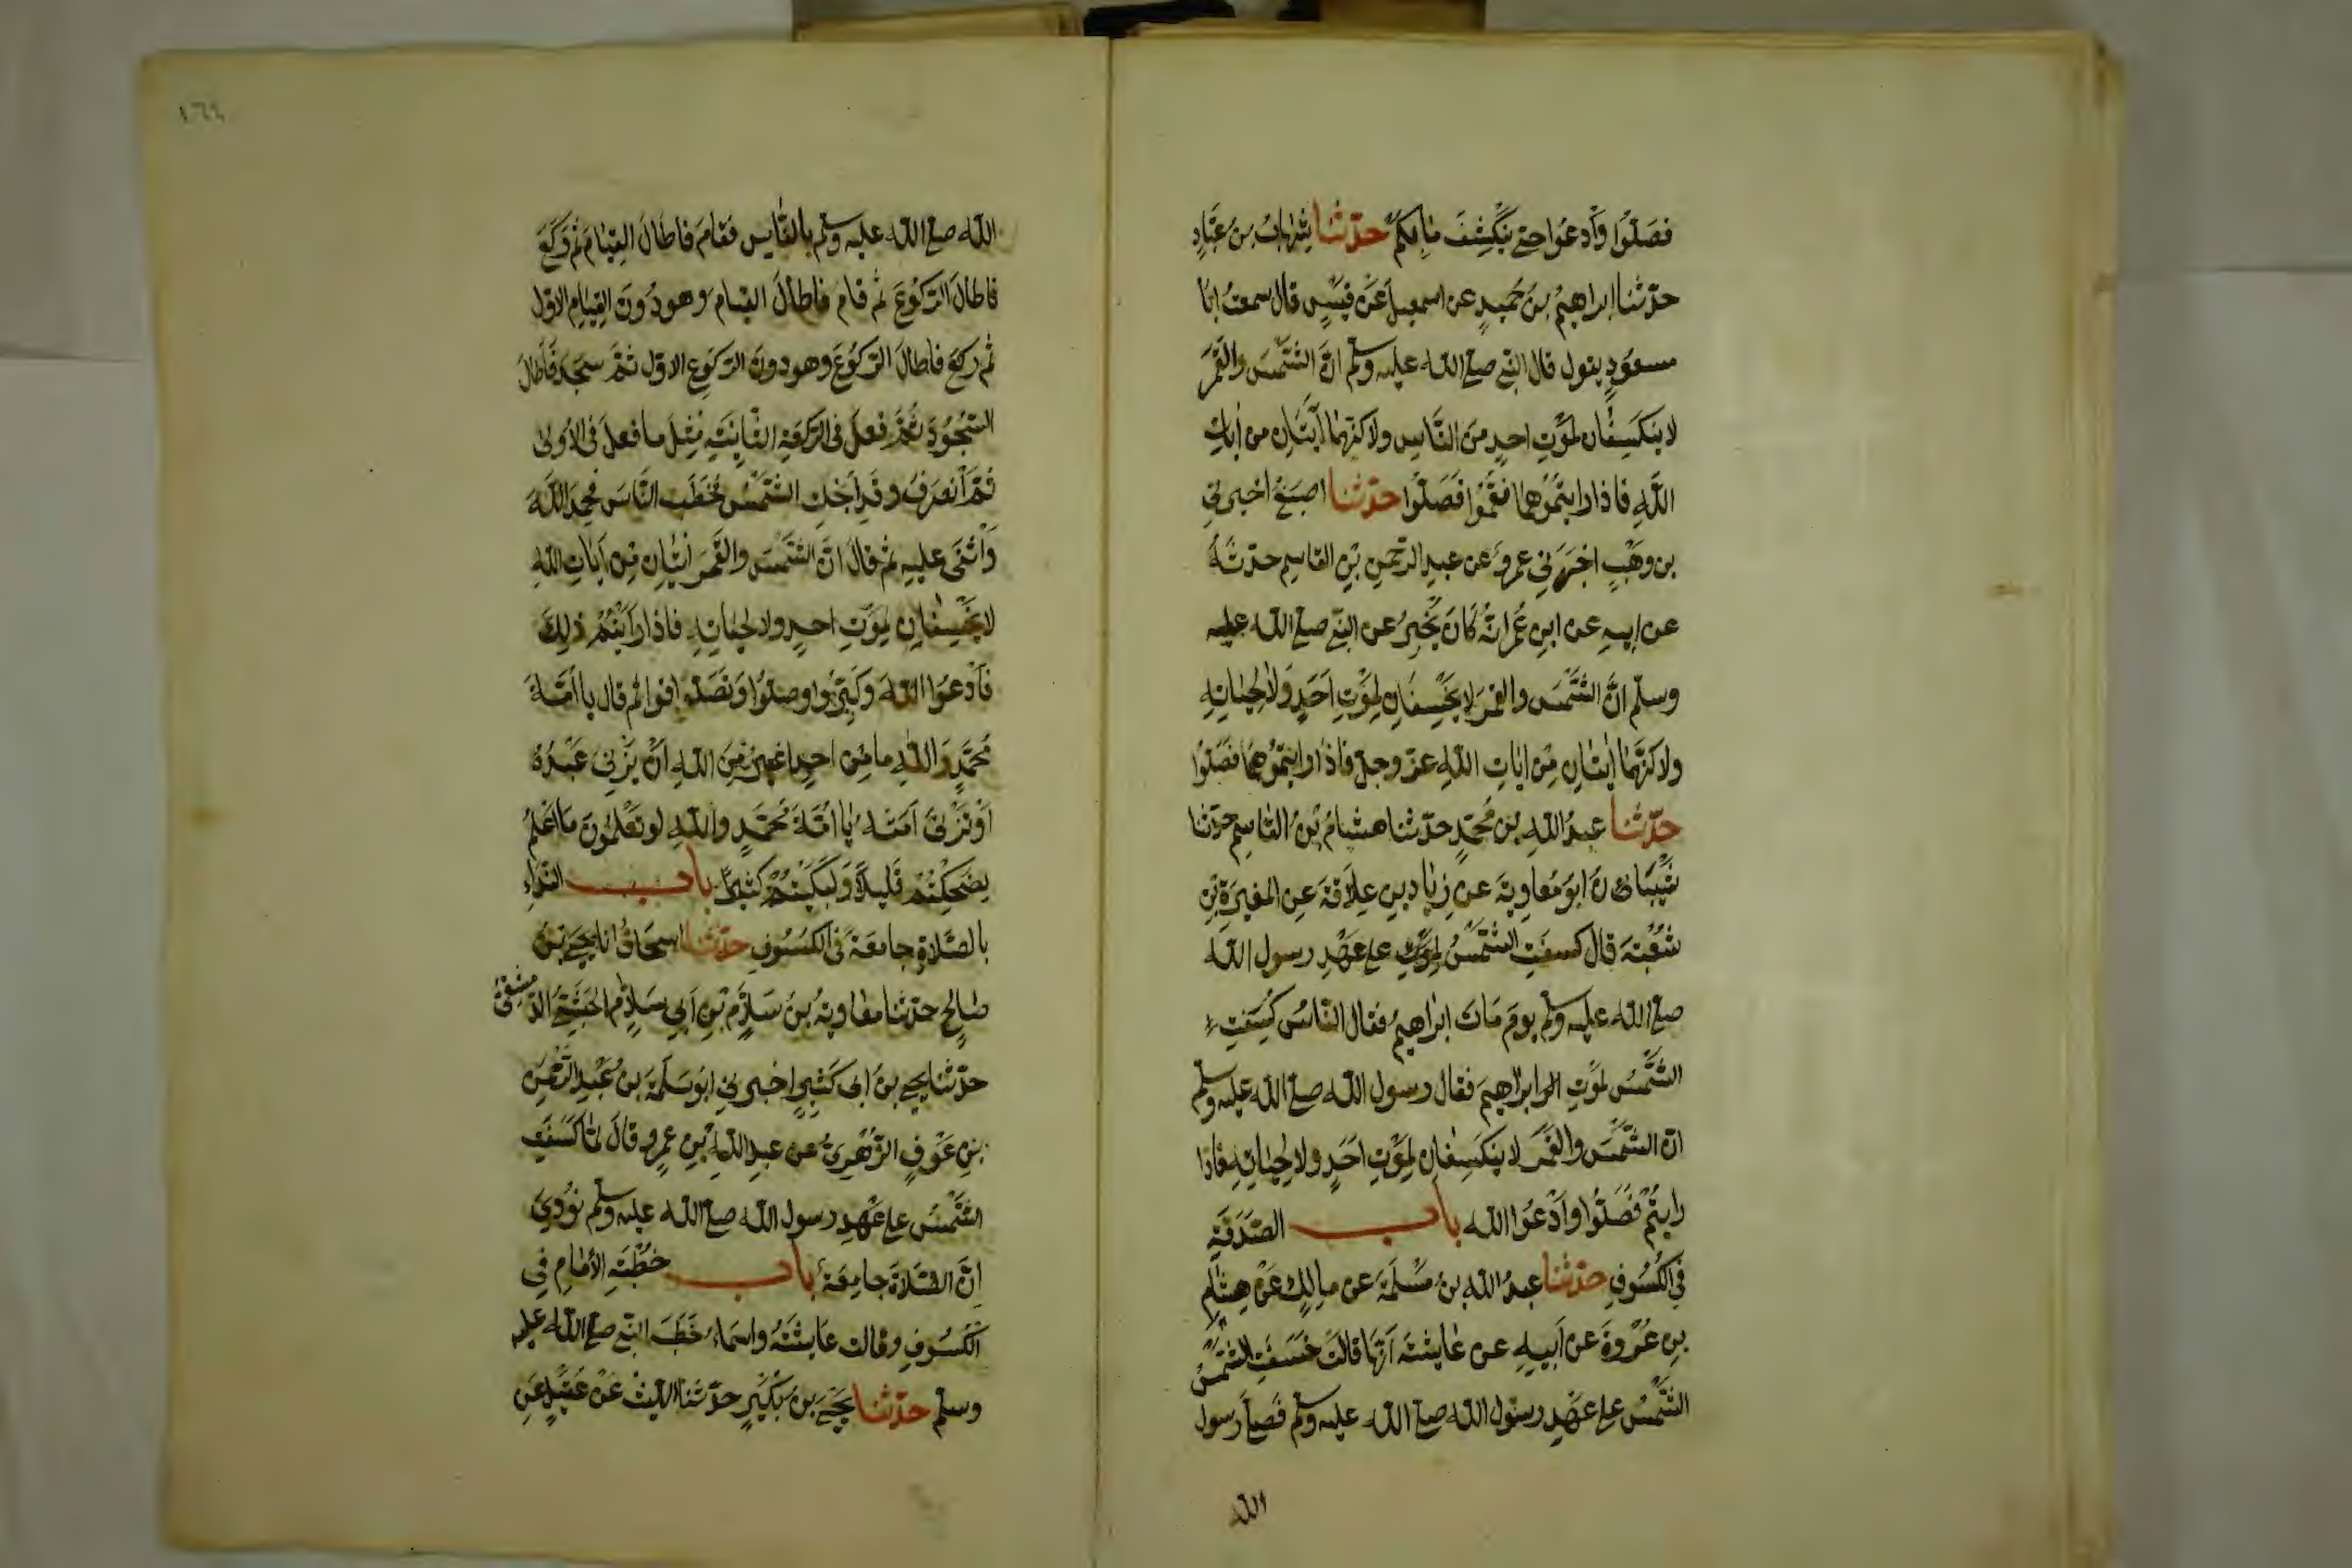 فصلوا وادعوا حتى ينكشف ما بكم حدثنا شهاب بن عباد
حدثنا ابراهيم بن حميد عن اسمعيل عن قيس قال سمعت ابا
مسعود يقول قال النبي صلى الله عليه وسلم ان الشمس والقمر
لا ينكسفان لموت احد من الناس ولاكنهما ايتان من ايات
الله فاذا رايتموهما فقوموا فصلوا حدثنا اصبغ اخبرني
بن وهب اخبرني عمرو عن عبد الرحمن بن القاسم حدثه
عن ابيه عن ابن عمر انه كان يخبر عن النبي صلى الله عليه
وسلم ان الشمس والقمر لا يخسفان لموت احد ولا لحياته
ولاكنهما ايتان من ايات الله عز وجل فاذا رايتموهما فصلوا
حدثنا عبد الله بن محمد حدثنا هشام بن القاسم حدثنا
شيبان ابو معاوية عن زياد بن علاقة عن المغيرة بن
شعبة قال كسفت الشمس على عهد رسول الله
صلى الله عليه وسلم يوم مات ابراهيم فقال الناس كسفت
الشمس لموت ابراهيم فقال رسول الله صلى الله عليه وسلم
ان الشمس والقمر لا ينكسفان لموت احد ولا لحياته فاذا
رايتم فصلوا وادعوا الله باب الصدقة
في الكسوف حدثنا عبد الله بن مسلمة عن مالك عن هشام
بن عروة عن ابيه عن عايشة انها قالت خسفت الشمس
الشمس على عهد رسول الله صلى الله عليه وسلم فصلى رسول
الله
١٦٤
الله صلى الله عليه وسلم بالناس فقام فاطال القيام ثم ركع
فاطال الركوع ثم قام فاطال القيام وهو دون القيام الاول
ثم ركع فاطال الركوع وهو دون الركوع الاول ثم سجد فاطال
السجود ثم فعل في الركعة الثانية مثل ما فعل في الاولى
ثم انصرف وقد انجلت الشمس فخطب الناس فحمد الله
واثنى عليه ثم قال ان الشمس والقمر ايتان من ايات الله
لا يخسفان لموت احد ولا لحياته فاذا رايتم ذلك
فادعوا الله وكبروا وصلوا وتصدقوا ثم قال يا امة
محمد والله ما من احد اغير من الله ان يزني عبده
او تزني امته يا امة محمد والله لو تعلمون ما اعلم
لضحكتم قليلا ولبكيتم كثيرا باب النداء
بالصلاة جامعة في الكسوف حدثنا اسحاق انا يحيى بن
صالح حدثنا معاوية بن سلام بن ابي سلام الحبشي الدمشقي
حدثنا يحيى بن ابي كثير اخبرني ابو سلمة بن عبد الرحمن
بن عوف الزهري عن عبد الله بن عمرو قال لما كسفت
الشمس على عهد رسول الله صلى الله عليه وسلم نودي
ان الصلاة جامعة باب خطبة الامام في
الكسوف وقالت عايشة واسماء خطب النبي صلى الله عليه
وسلم حدثنا يحيى بن بكير حدثنا الليث عن عقيل عن